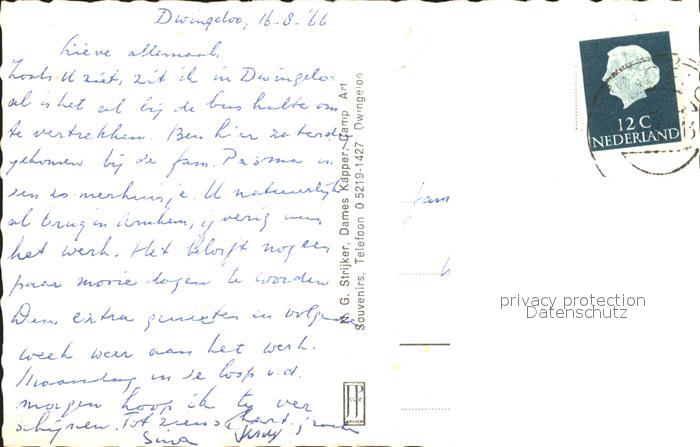 Dwingeloo, 16-8-'66
Lieve allemaal,
Zoals U ziet, zit ik in Dwingeloo
al is het al bij de bushalte om
te vertrekken. Ben hier zaterdag
gekomen bij de fam. in
een zomerhuisje. U natuurlijk
al terug in Arnhem, ijverig aan
het werk. Het belooft nog een
paar mooie dagen te worden
Dus extra genieten en volgende
week weer aan het werk.
Maandag in de loop v.d.
morgen hoop ik te ver
schijnen. Tot ziens hart. groeten
G. Strijker, Dames Kapper, Camp Art
Souvenirs, Telefoon 0 5219-1427 Dwingeloo
JP
12 C
NEDERLAND
fam
privacy protection
Datenschutz